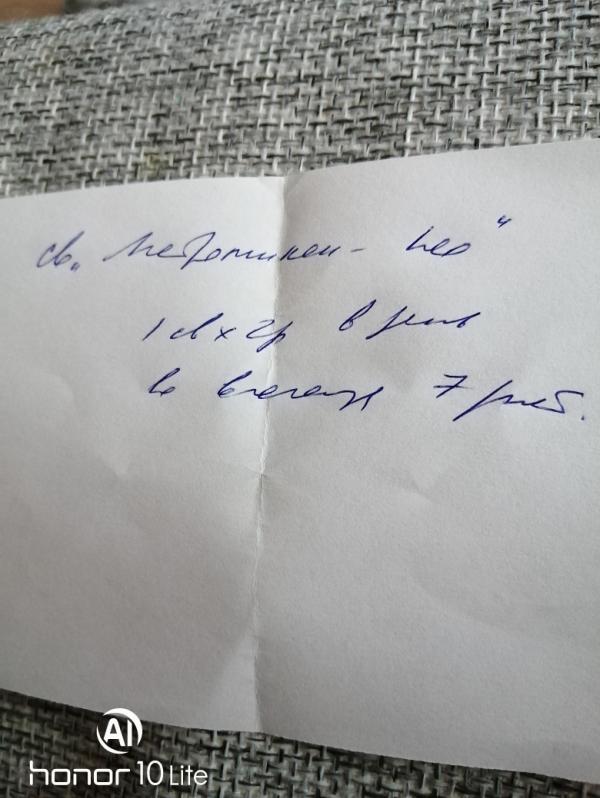 св. "Метромикон - Нео"
1 св х 2р в день
во влагал. 7 дней.
AI
honor 10 Lite